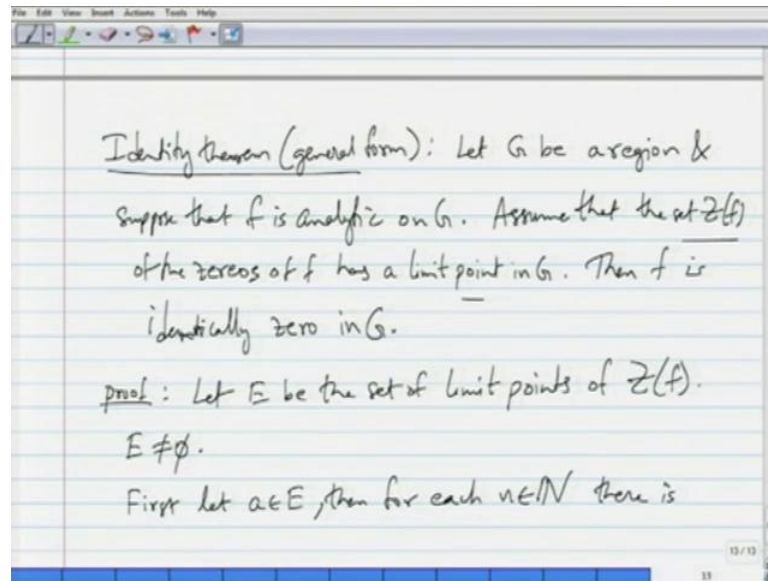 File Edit View Insert Actions Tools Help
Identity theorem (general form): Let G be a region &
suppose that f is analytic on G. Assume that the set Z(f)
of the zereos of f has a limit point in G. Then f is
identically zero in G.
proof: Let E be the set of limit points of Z(f).
E ≠ φ.
First let a∈E, then for each n∈ℕ there is
13/13
13